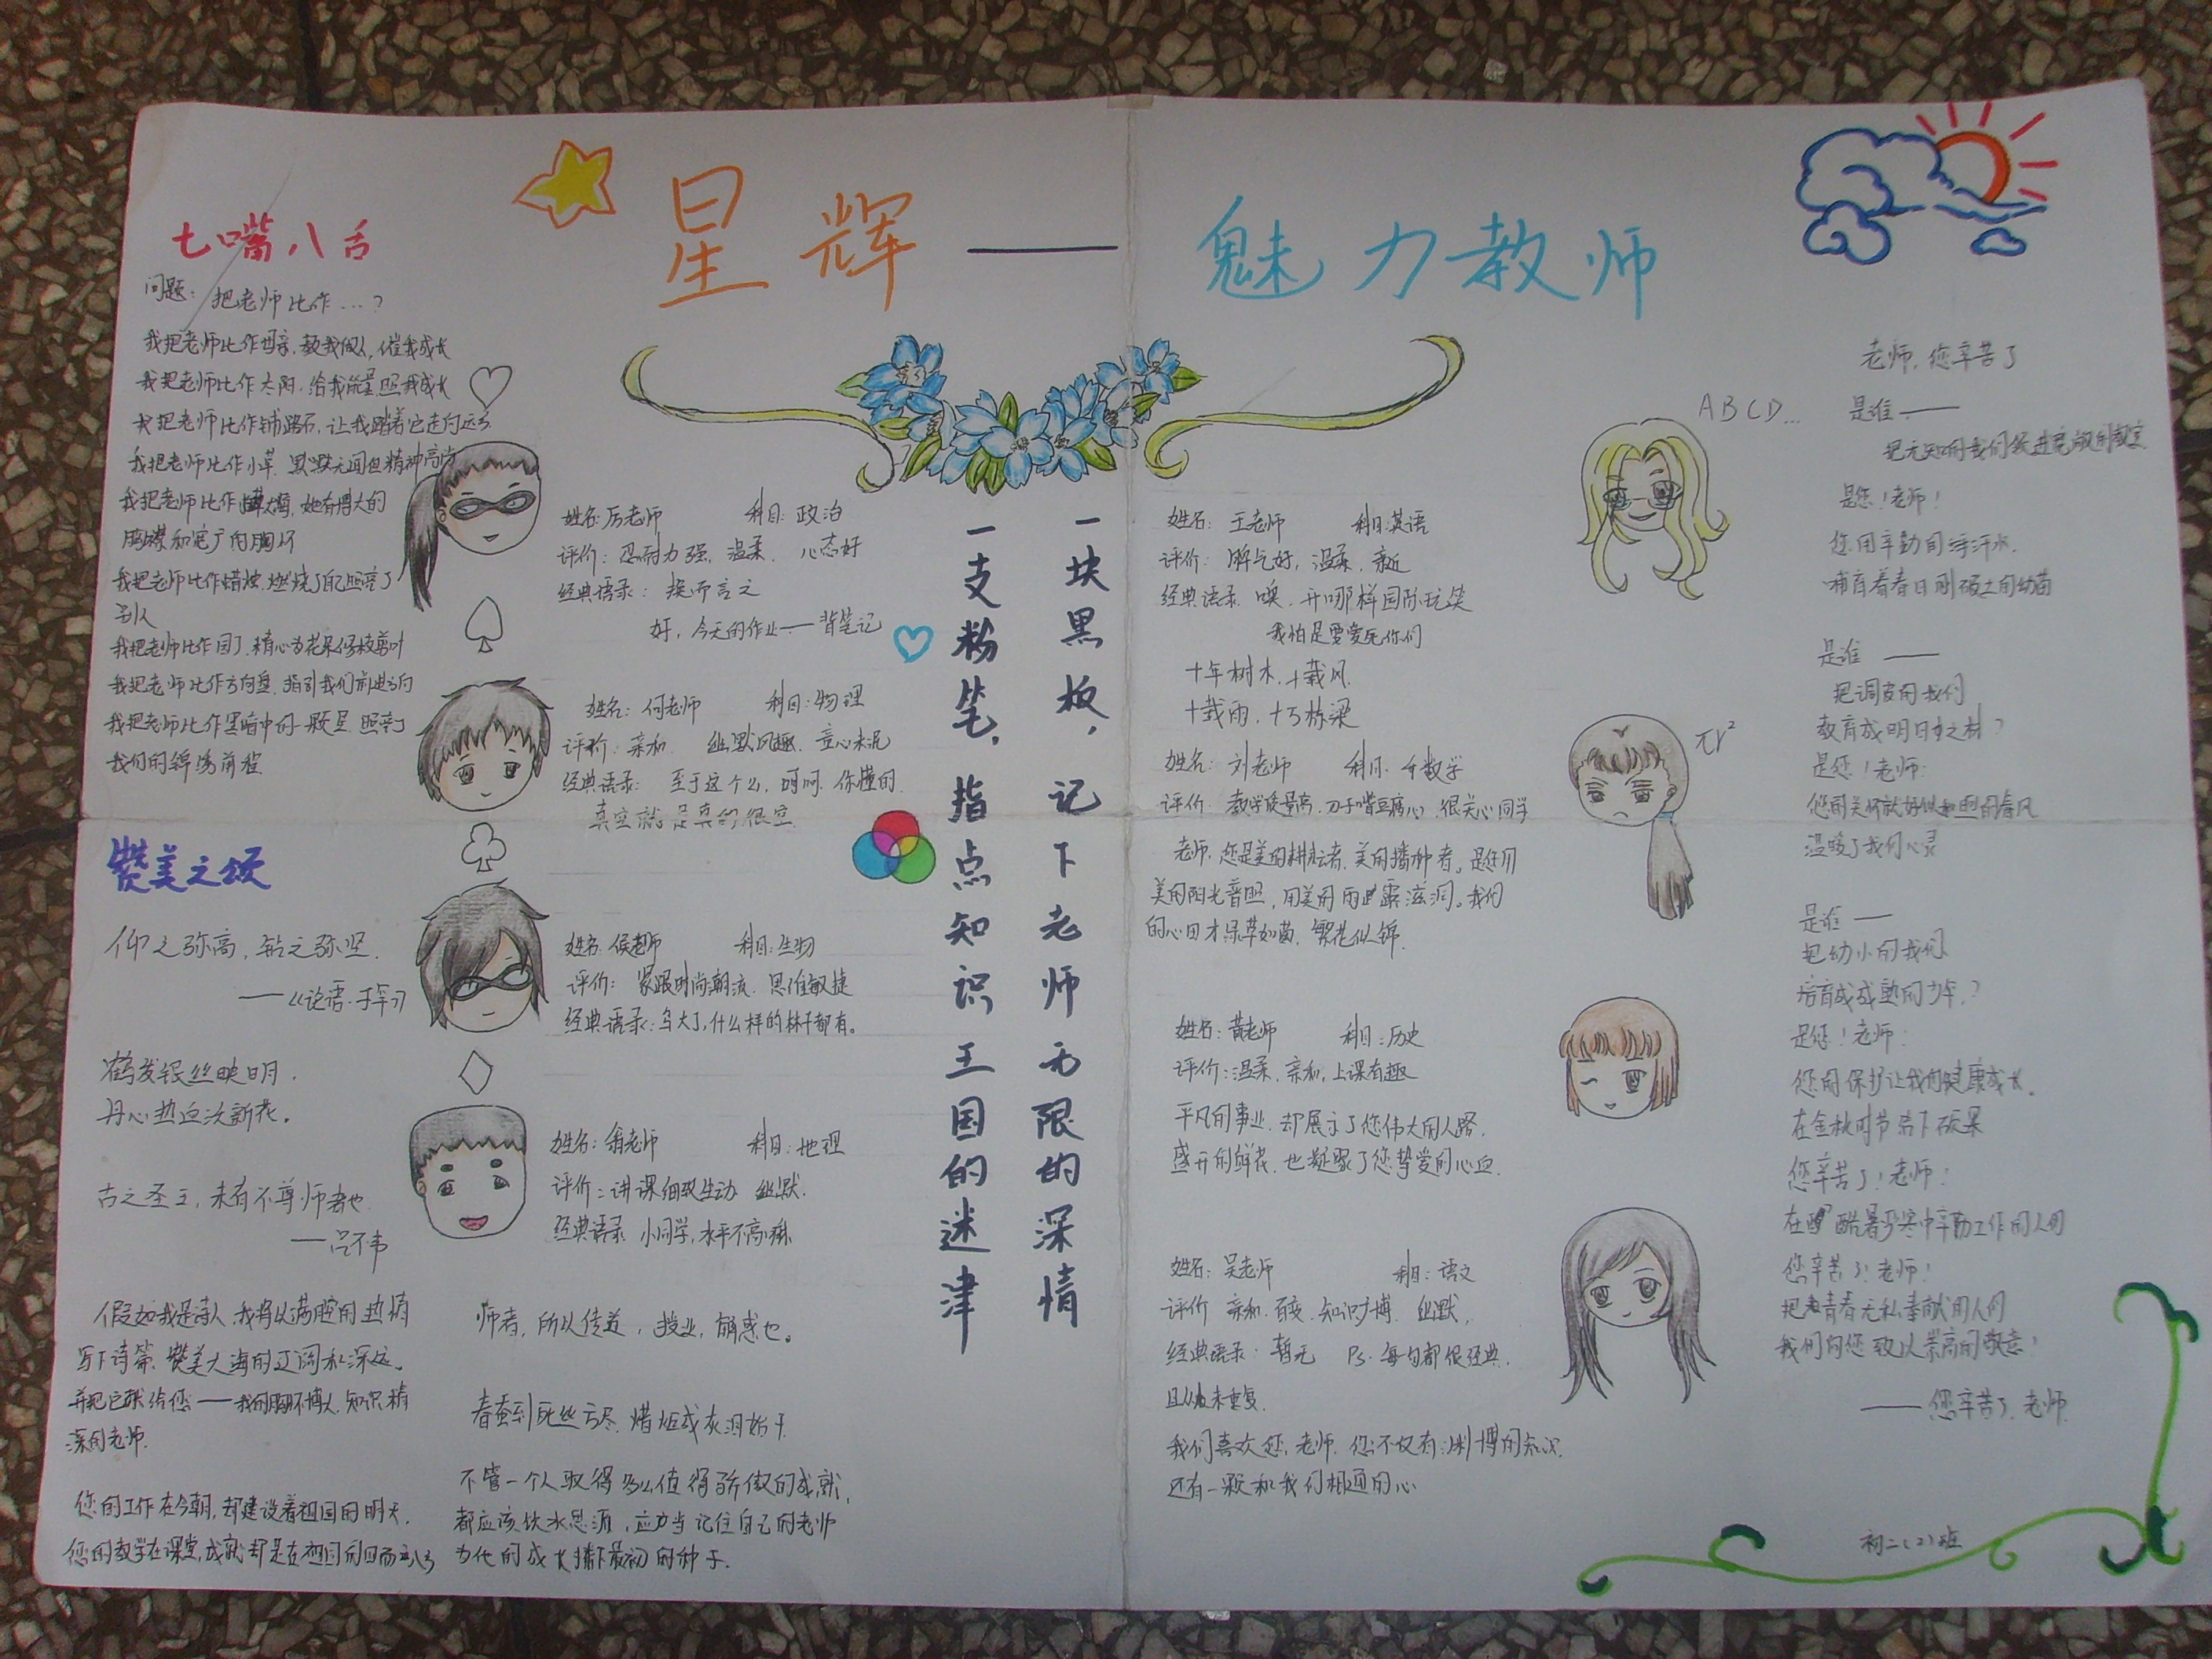 星辉——魅力教师
七嘴八舌
问题：把老师比作…？
我把老师比作母亲，教我做人，催我成长
我把老师比作太阳，给我能量照我成长
我把老师比作铺路石，让我踏着它走向远方
我把老师比作小草，默默无闻但精神高尚
我把老师比作，她有博大的
胸襟和宽广的胸怀
我把老师比作蜡烛，燃烧了自己照亮了
别人
我把老师比作园丁，精心为花朵修枝剪叶
我把老师比作方向盘，指引我们前进方向
我把老师比作黑暗中的一颗星 照亮了
我们的锦绣前程
赞美之颂
仰之弥高，钻之弥坚．
——《论语·子罕》
鹤发银丝映日月，
丹心热血沃新花。
古之圣王，未有不尊师者也
——吕不韦
假如我是诗人，我将以满腔的热情
写下诗篇，赞美大海的辽阔和深远。
并把它献给您——我的胸怀博大，知识精
深的老师．
您的工作在今朝，却建设着祖国的明天，
您的教学在课堂，成就却是在祖国的四面八方
姓名：厉老师 科目：政治
评价：忍耐力强，温柔，心态好
经典语录：换而言之
好，今天的作业——背笔记
姓名：何老师 科目：物理
评价：亲和 幽默风趣，童心未泯
经典语录： 至于这个么，呵呵，你懂的．
真空就是真的很空．
姓名：侯老师 科目：生物
评价： 紧跟时尚潮流，思维敏捷
经典语录：鸟大了，什么样的林子都有。
姓名：翁老师 科目：地理
评价：讲课细致生动 幽默．
经典语录 小同学，水平不高嘛
师者，所以传道，授业，解惑也。
春蚕到死丝方尽，蜡炬成灰泪始干
不管一个人取得多么值得骄傲的成就，
都应该饮水思源，应当记住自己的老师
为他的成长播下最初的种子．
一块黑板，记下老师无限的深情
一支粉笔，指点知识王国的迷津
姓名：王老师 科目：英语
评价：脾气好，温柔，亲近
经典语录 噢，开哪样国际玩笑
我怕是要爱死你们
十年树木，十载风，
十载雨，十万栋梁
姓名：刘老师 科目：数学
评价：教学质量高，刀子嘴豆腐心，很关心同学
老师，您是美的耕耘者，美的播种者。是您用
美的阳光普照，用美的雨露滋润。我们
的心田才绿草如茵，繁花似锦．
姓名：黄老师 科目：历史
评价：温柔，亲和，上课有趣
平凡的事业，却展示了您伟大的人格．
盛开的鲜花，也凝聚了您挚爱的心血．
姓名：吴老师 科目：语文
评价 亲和，知识广博，幽默，
经典语录：暂无 Ps：每句都很经典．
且从未重复．
我们喜欢您，老师．您不仅有渊博的知识，
还有一颗和我们相通的心
ABCD...
πr²
老师，您辛苦了
是谁——
把无知的我们领进宽敞的教室
是您！老师！
您用辛勤的汗水．
哺育着春日刚破土的幼苗
是谁——
把调皮的我们
教育成明日之材？
是您！老师：
您的关怀就好似和煦的春风
温暖了我们心灵
是谁——
把幼小的我们
培育成成熟的少年？
是您！老师：
您的保护让我们健康成长．
在金秋时节结下硕果
您辛苦了！老师！
在酷暑严寒中辛勤工作的人们
您辛苦了！老师！
把青春无私奉献的人们
我们向您致以崇高的敬意！
——您辛苦了，老师
初二（2）班